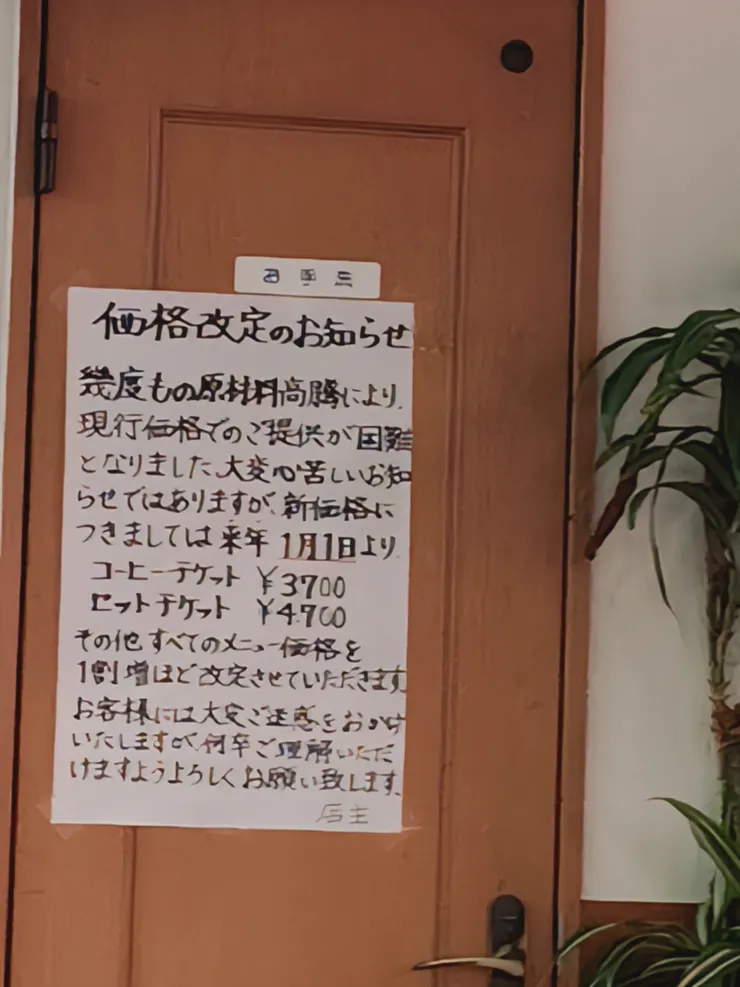 お手洗
価格改定のお知らせ
幾度もの原材料高騰により、
現行価格でのご提供が困難
となりました。大変心苦しいお知
らせではありますが、新価格に
つきましては来年 1月1日より、
コーヒーチケット ¥3700
セットチケット ¥4700
その他すべてのメニュー価格を
1割増ほど改定させていただきます。
お客様には大変ご迷惑をおかけ
いたしますが、何卒ご理解いただ
けますようよろしくお願い致します。
店主